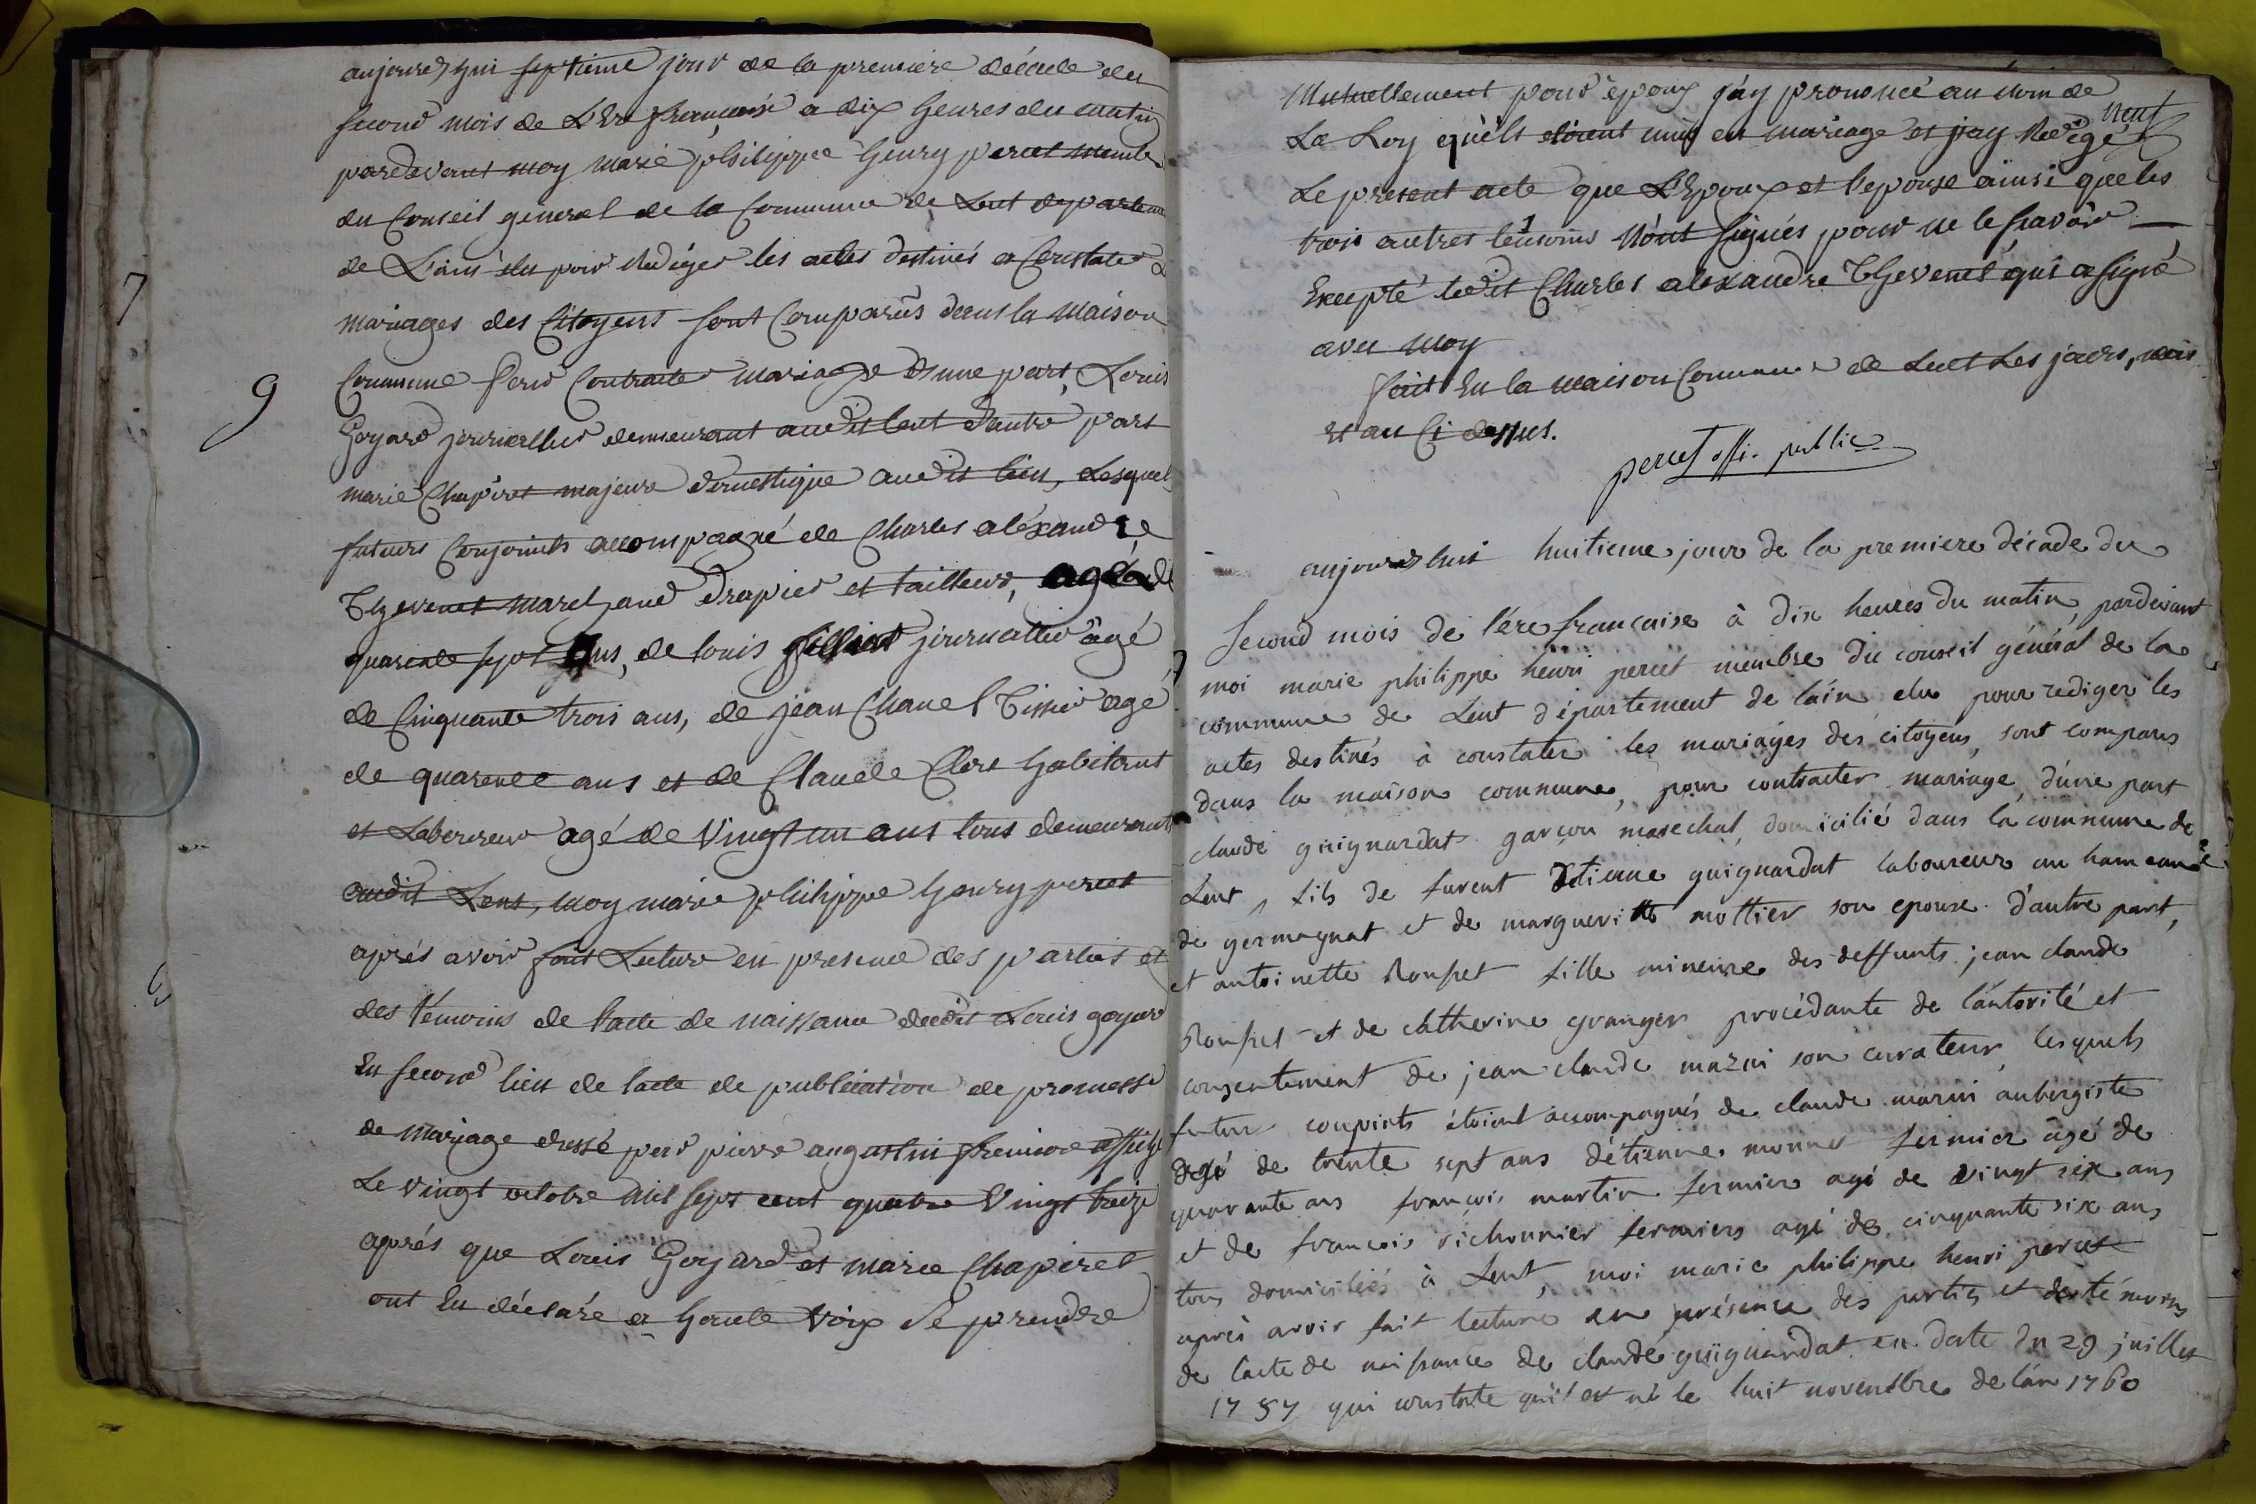 aujourdhui septieme jour de la premiere décade du
second mois de L'Ere françoise a dix heures du matin
pardevant moy marie philippe henry percet membre
du Conseil general de la Commune de Lent departem
de L'ain élu pour Rediger les actes destinés a Constater
mariages des Citoyens sont Comparus dans la Maison
Commune pour Contracter mariage d'une part, Louis
9
Goyard journallier demeurant audit lent d'autre part
marie Chapiret majeure domestique audit lieu, Lesquel
futurs Conjoints accompagné de Charles aléxandre
Thevenet marchand drapier et tailleur, agé de
quarente sept Ans, de louis journallier âgé
de Cinquante trois ans, de jean Chanel Tissier agé
de quarente ans et de Claude Clere habitant
et Laboureur agé de Vingt un ans tous demeurant
audit Lent, moy marie philippe henry percet
aprés avoir fait Lecture en presence des parties et
des temoins de l'acte de naissance dudit Louis goyard
En second lieu de l'acte de publication de promesse
de mariage dressé par pierre augustin
Le vingt octobre mil sept cent quatre Vingt treize
aprés que Louis Goyard et marie Chapiret
ont Eu déclaré a haute Voix se prendre
7
Mutuellement pour époux j'ay prononcé au nom de
neuf
La Loy qu'ils etoient unis en mariage et j'ay Redigé
Le present acte que L'Epoux et l'epouse ainsi que les
trois autres temoins N'ont signés pour ne le sçavoir
Excepté ledit Charles alexandre Thevenet qui a signé
avec moy
fait En la maison Commune de Lent Les jours, mois
et an Ci dessus.
percet offi. public
aujourdhuit huitieme jour de la premiere décade du
second mois de l'ére française à dix heures du matin, pardevant
moi marie philippe henri percet membre du conseil général de la
commune de Lent département de l'ain elu pour rediger les
actes destinés à constater les mariages des citoyens, sont comparus
dans la maison commune, pour contracter mariage, d'une part
claude guignardat garçon marechal, domicilié dans la commune de
Lent, fils de furent Etienne guignardat laboureur au hameau de
de germagnat et de marguerite mottier son epouse. d'autre part,
et antoinette Rouset fille mineure des deffunts jean claude
Rouset et de catherine granger procédante de l'autorité et
consentement de jean claude mazui son curateur, lesquels
futur conjoints étoient accompagnés de claude marin aubergiste
agé de trente sept ans d'étienne monnet fermier âgé de
quarante ans françois martin fermier agé de vingt six ans
et de françois richonnier fermiers agé de cinquante six ans
tous domiciliés à Lent, moi marie philippe henri percet
après avoir fait lecture en présence des parties et des témoins
de l'acte de naissance de claude guignardat en date du 29 juillet
1757 qui constate qu'il est né le huit novembre de l'an 1760